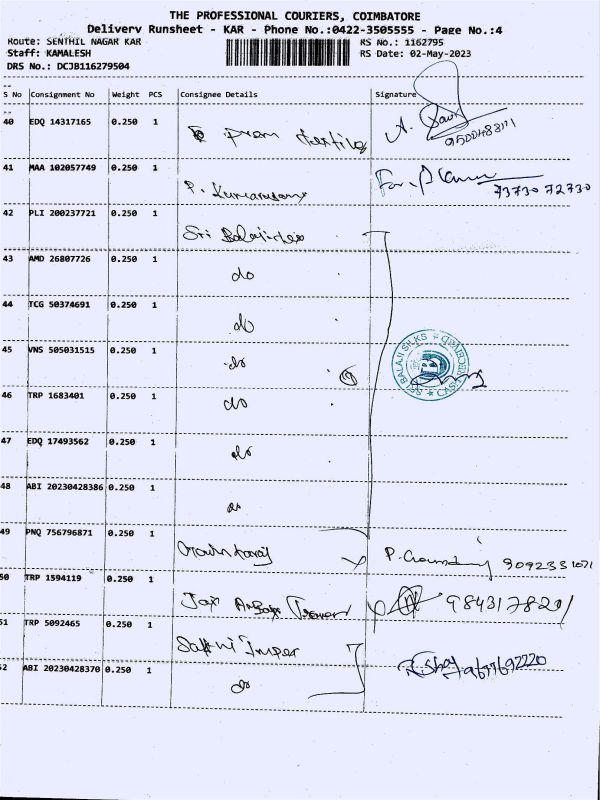 THE PROFESSIONAL COURIERS, COIMBATORE
Delivery Runsheet - KAR - Phone No.:0422-3505555 - Page No.:4
Route: SENTHIL NAGAR KAR
RS No.: 1162795
Staff: KAMALESH
RS Date: 02-May-2023
DRS No.: DCJB116279504
S No Consignment No Weight PCS Consignee Details Signature
40 EDQ 14317165 0.250 1
41 MAA 102057749 0.250 1 73730 72730
42 PLI 200237721 0.250 1 Sri Balaji tex
43 AMD 26807726 0.250 1 do
44 TCG 50374691 0.250 1 do
45 VNS 505031515 0.250 1 do
SRI BALAJI SILKS
46 TRP 1683401 0.250 1 do
47 EDQ 17493562 0.250 1 do
48 ABI 20230428386 0.250 1 do
49 PNQ 756796871 0.250 1
50 TRP 1594119 0.250 1
51 TRP 5092465 0.250 1 Sakthi Imper
52 ABI 20230428370 0.250 1 do 9677692220